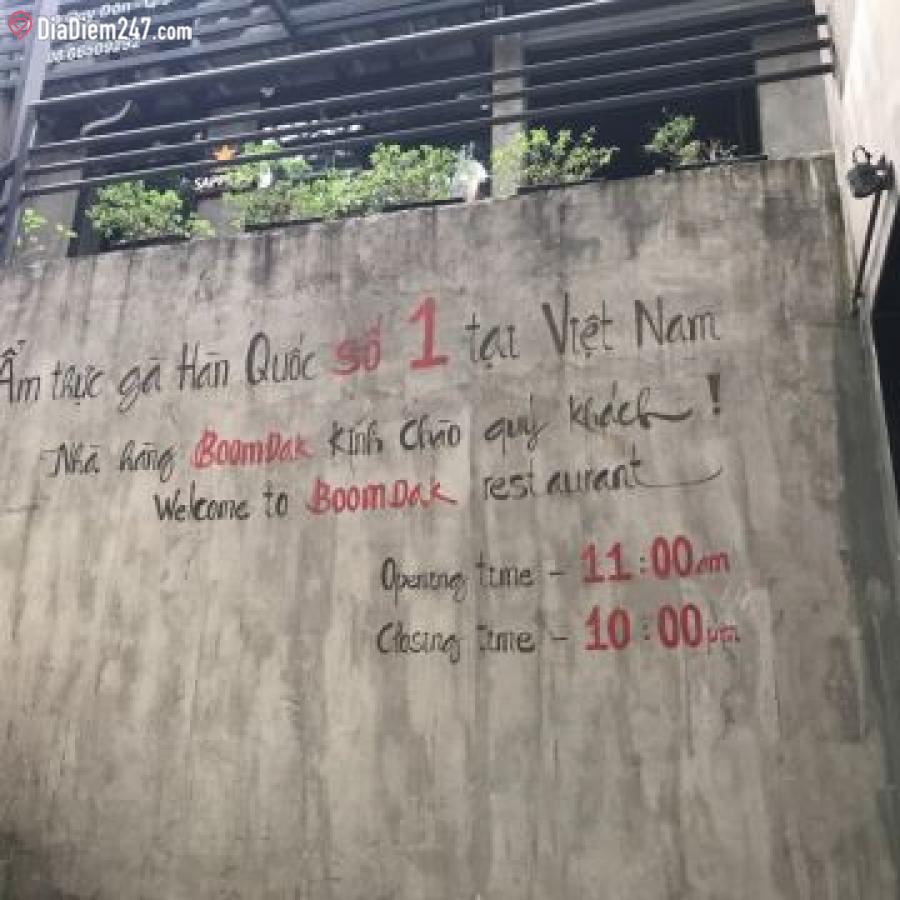 DiaDiem247.com
Ẩm thực gà Hàn Quốc số 1 tại Việt Nam
Nhà hàng BoomDak kính chào quý khách !
Welcome to BoomDak restaurant
Opening time - 11:00am
Closing time - 10:00pm